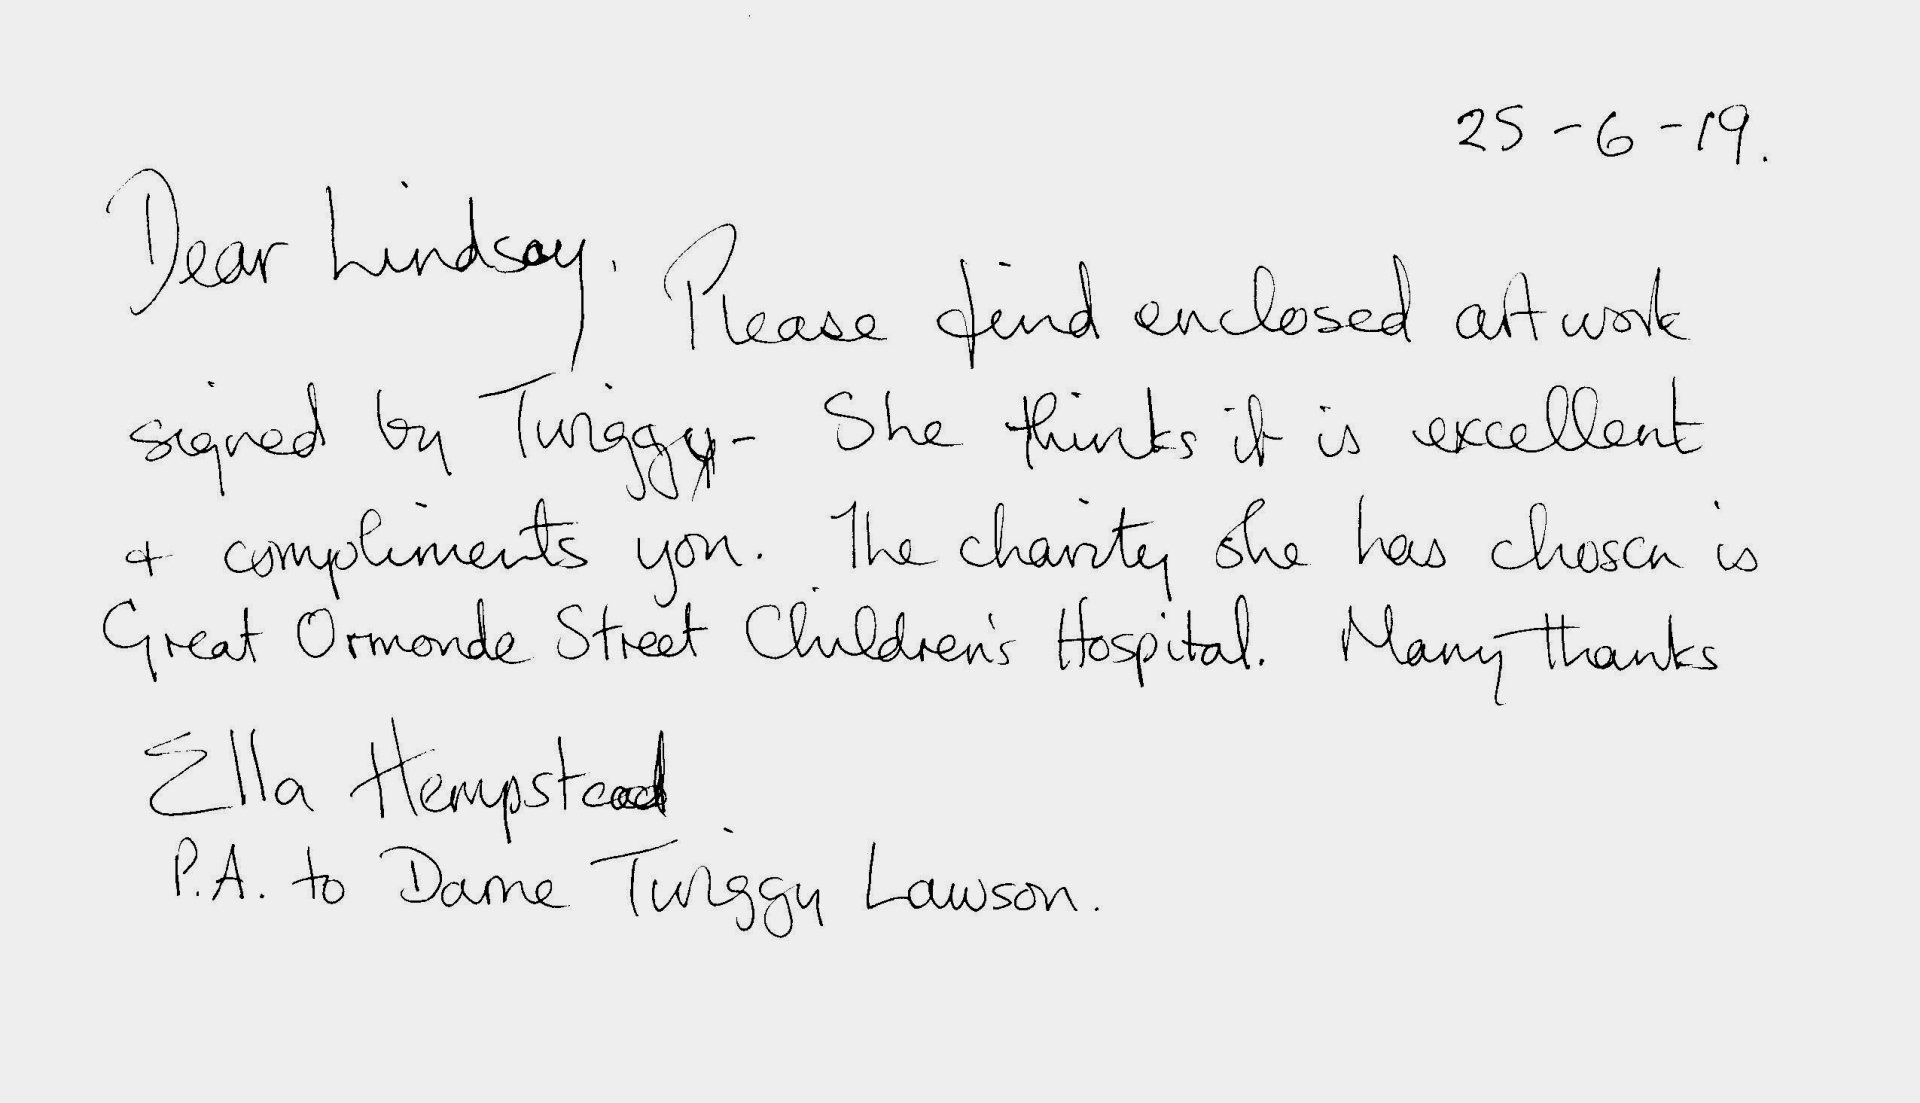 25-6-19.
Dear Lindsay.
Please find enclosed artwork
signed by Twiggy - She thinks it is excellent
+ compliments you. The charity she has chosen is
Great Ormonde Street Children's Hospital. Many thanks
Ella Hempstead
P.A. to Dame Twiggy Lawson.